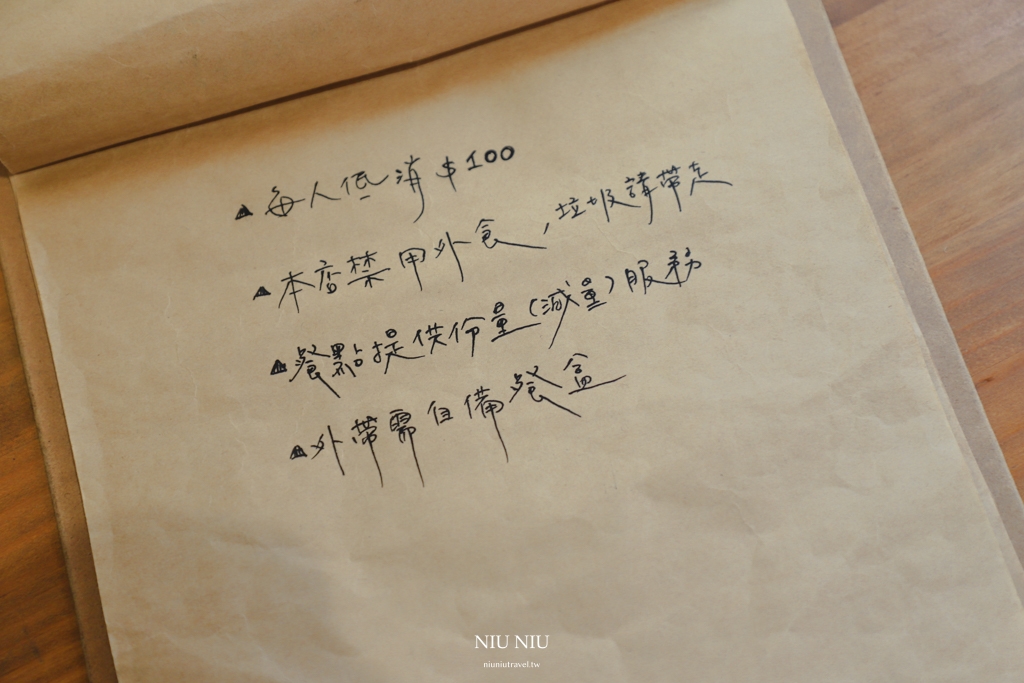 ▲每人低消$100
▲本店禁用外食,垃圾請帶走
▲餐點提供份量(減量)服務
▲外帶需自備餐盒
NIU NIU
niuniutravel.tw